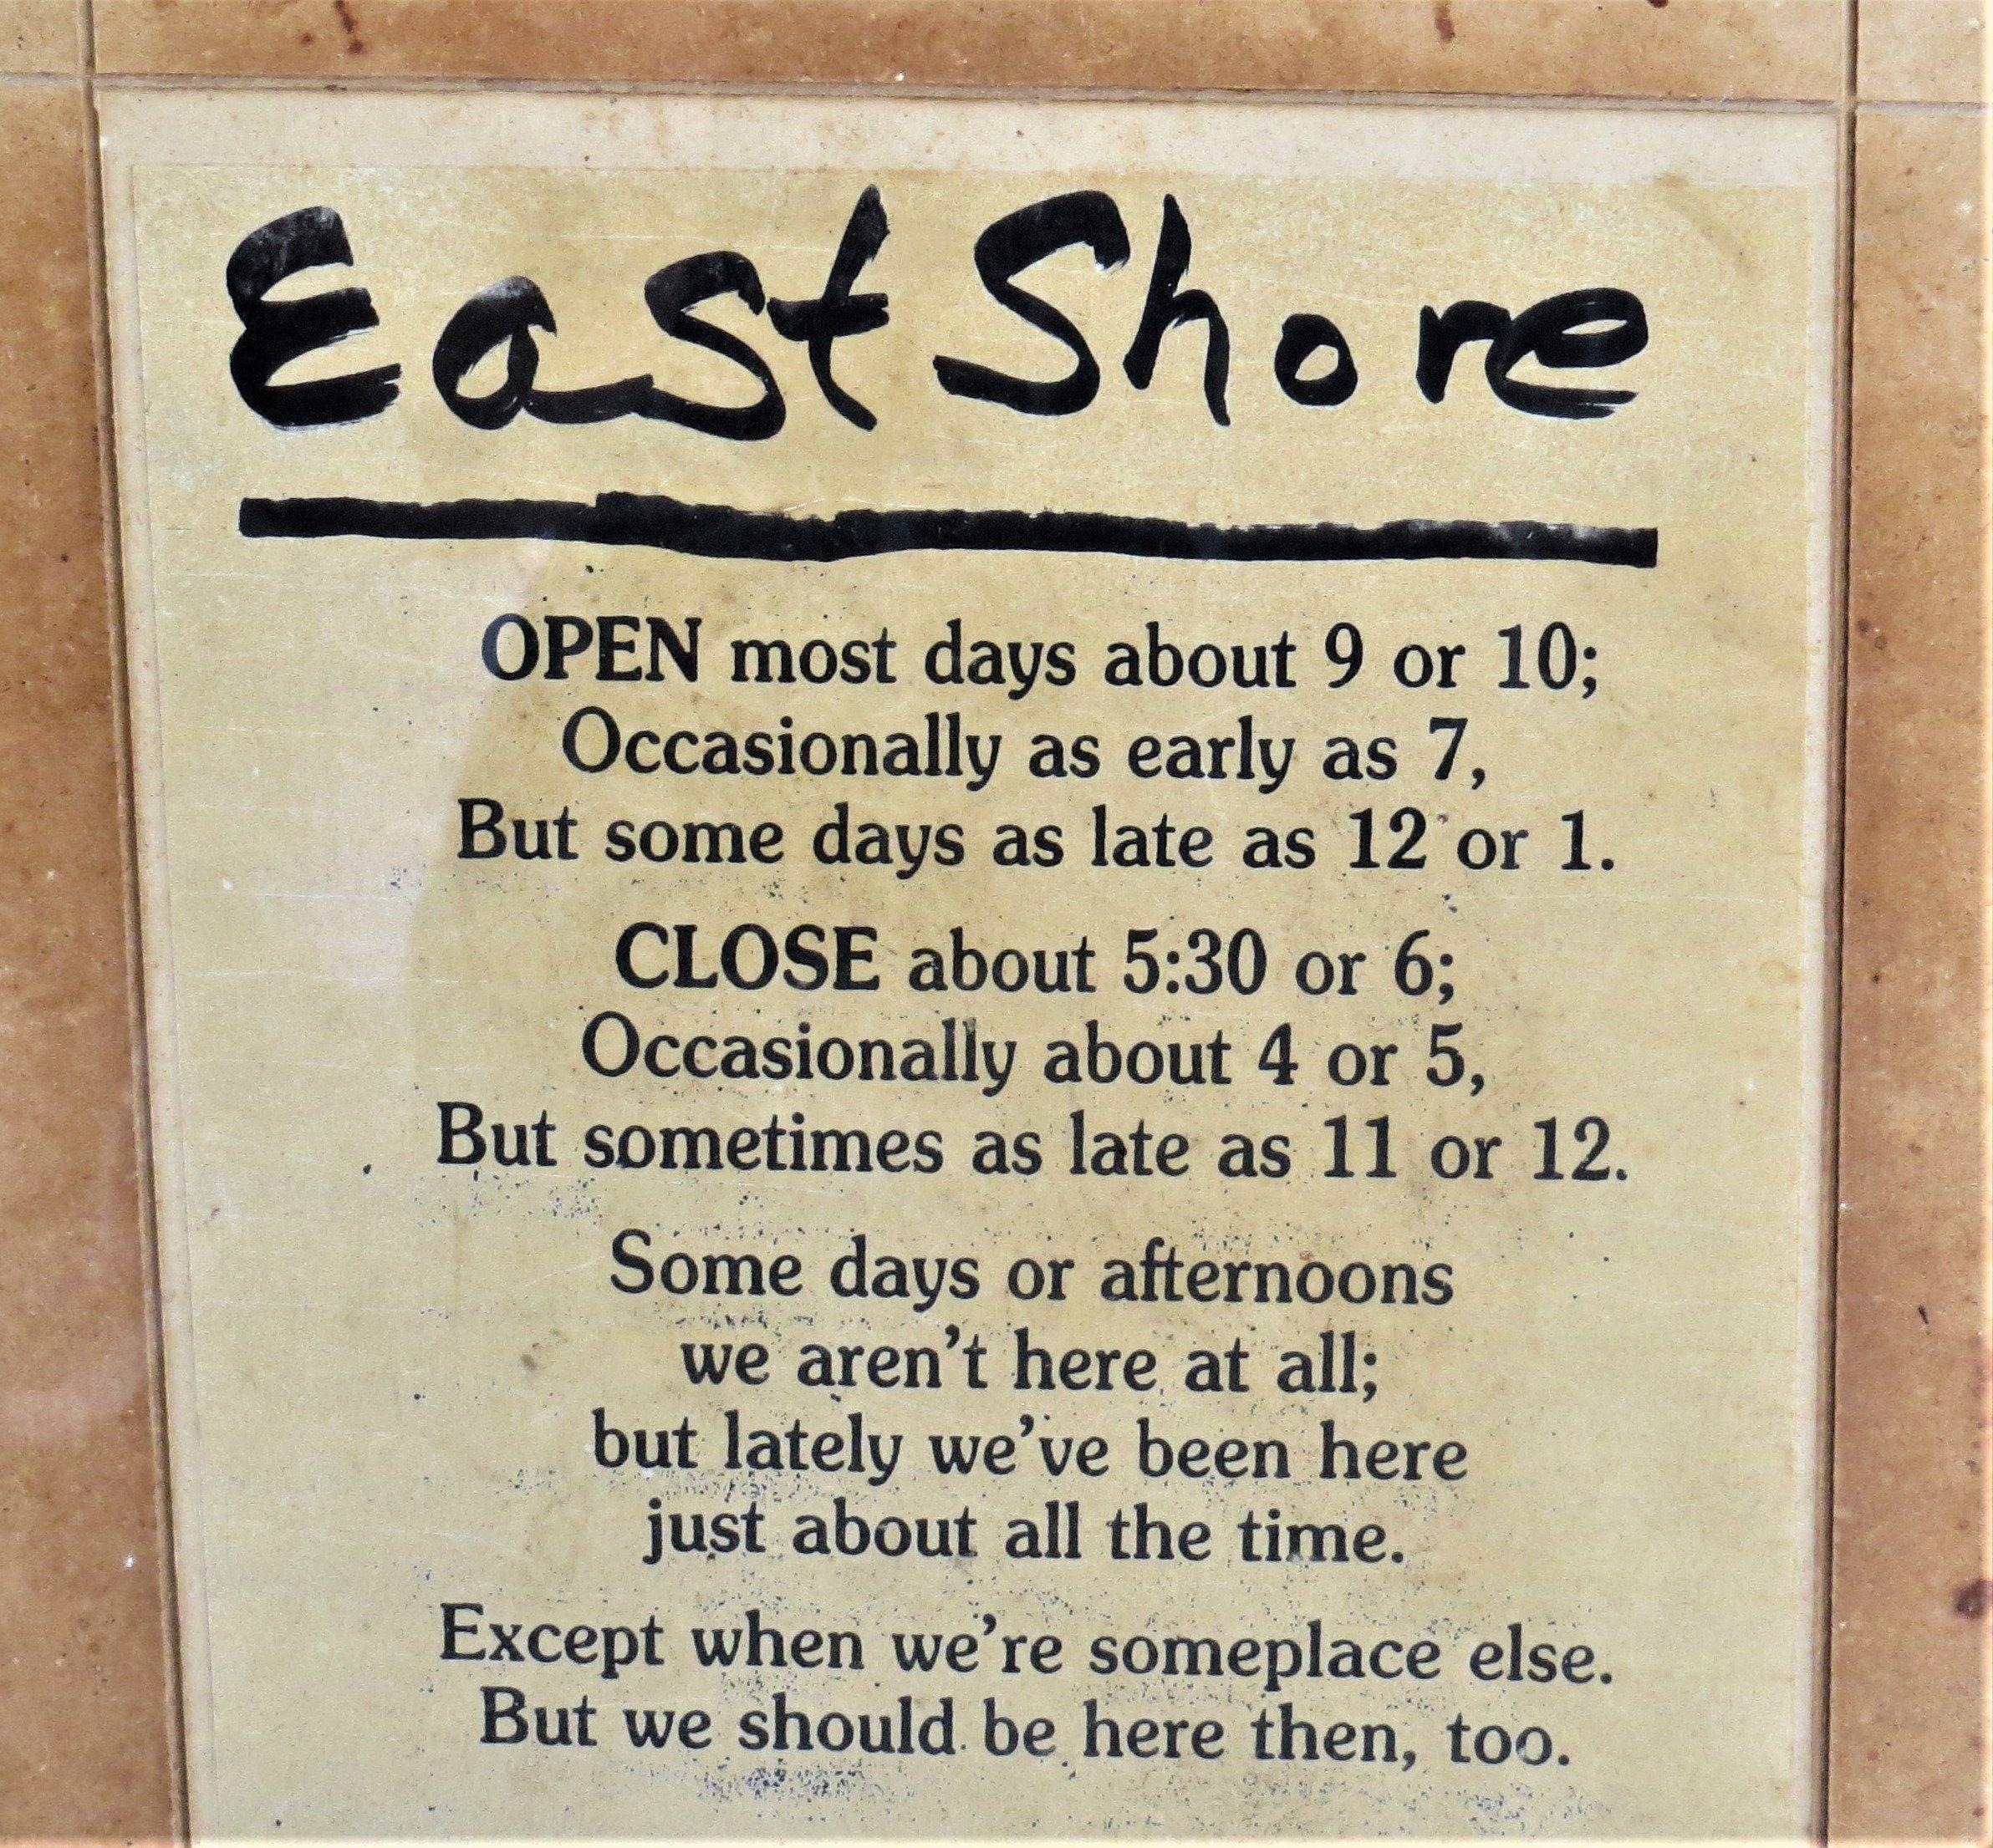 East Shore
OPEN most days about 9 or 10;
Occasionally as early as 7,
But some days as late as 12 or 1.
CLOSE about 5:30 or 6;
Occasionally about 4 or 5,
But sometimes as late as 11 or 12.
Some days or afternoons
we aren't here at all;
but lately we've been here
just about all the time.
Except when we're someplace else.
But we should be here then, too.